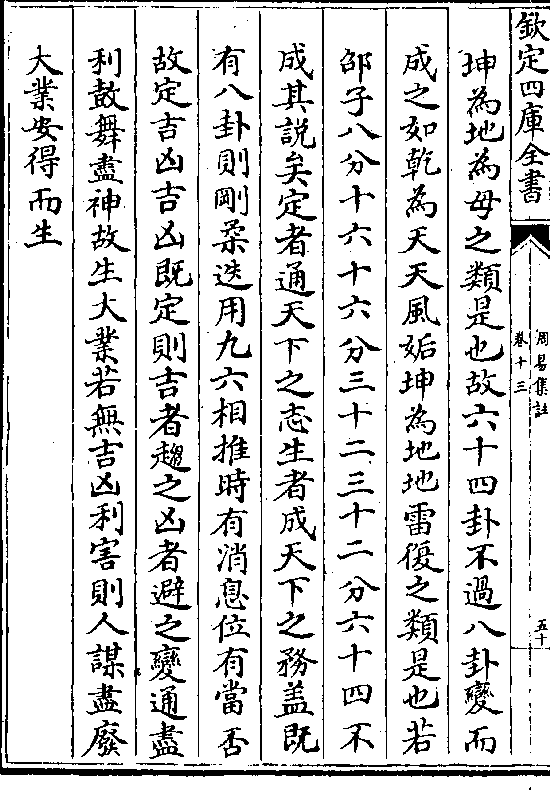 欽定四庫全書
周易集註
卷十三
五十
坤為地為母之類是也故六十四卦不過八卦變而
成之如乾為天天風姤坤為地地雷復之類是也若
邵子八分十六十六分三十二三十二分六十四不
成其説矣定者通天下之志生者成天下之務盖既
有八卦則剛柔迭用九六相推時有消息位有當否
故定吉凶吉凶既定則吉者趨之凶者避之變通盡
利鼓舞盡神故生大業若無吉凶利害則人謀盡廢
大業安得而生